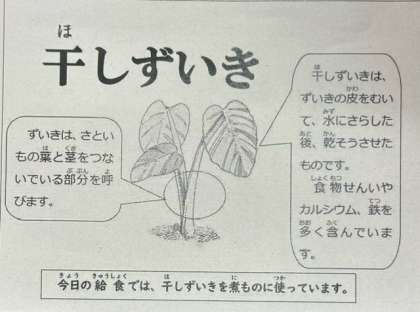 干しずいき
ずいきは、さとい
もの葉と茎をつな
いでいる部分を呼
びます。
干しずいきは、
ずいきの皮をむい
て、水にさらした
後、乾そうさせた
ものです。
食物せんいや
カルシウム、鉄を
多く含んでいま
す。
今日の給食では、干しずいきを煮ものに使っています。